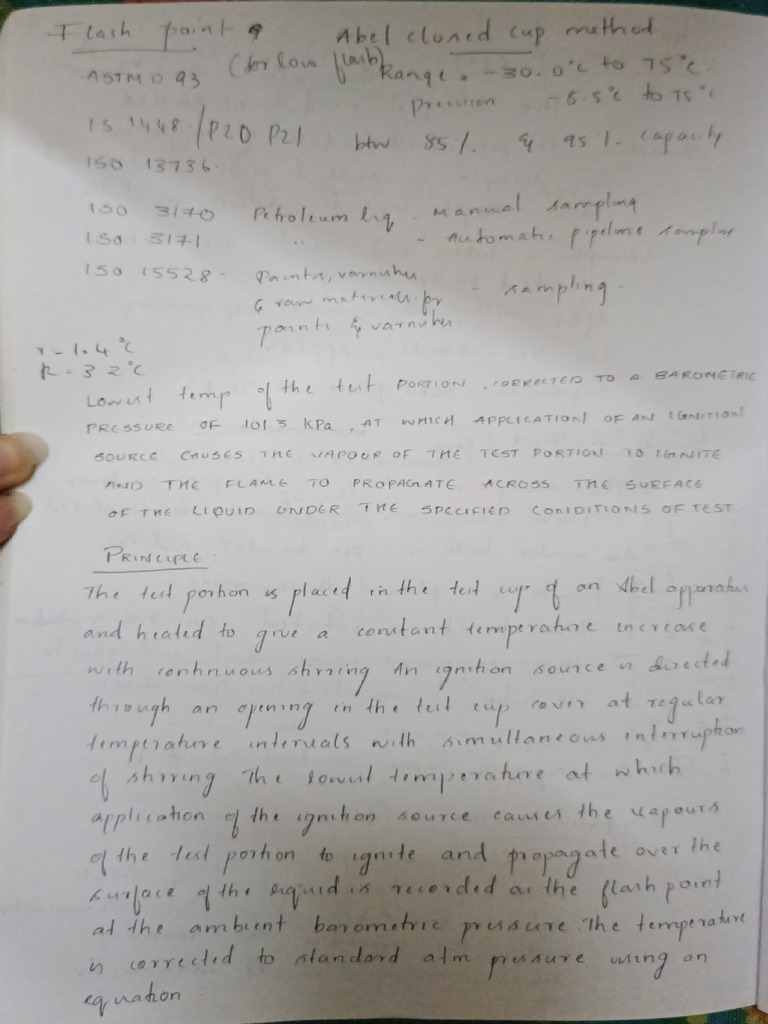 Flash point Abel closed cup method
(for low flash)
ASTM D 93 Range = -30.0°C to 75°C
precision -8.5°C to 75°C
IS 1448/P20 P21 btw 85% & 95% capacity
ISO 13736.
ISO 3170 Petroleum liq - Manual sampling
ISO 3171 " - Automatic pipeline
ISO 15528 - Paints, varnishes
& raw materials for - sampling.
paints & varnishes
r = 1.4°C
R = 3.2°C
Lowest temp of the test PORTION, CORRECTED TO A BAROMETRIC
PRESSURE OF 101.3 KPa, AT WHICH APPLICATION OF AN IGNITION
SOURCE CAUSES THE VAPOUR OF THE TEST PORTION TO IGNITE
AND THE FLAME TO PROPAGATE ACROSS THE SURFACE
OF THE LIQUID UNDER THE SPECIFIED CONDITIONS OF TEST
PRINCIPLE:
The test portion is placed in the test cup of an Abel apparatus
and heated to give a constant temperature increase
with continuous stirring An ignition source is directed
through an opening in the test cup cover at regular
temperature intervals with simultaneous interruption
of stirring The lowest temperature at which
application of the ignition source causes the vapours
of the test portion to ignite and propagate over the
surface of the liquid is recorded as the flash point
at the ambient barometric pressure. The temperature
is corrected to standard atm pressure using an
equation